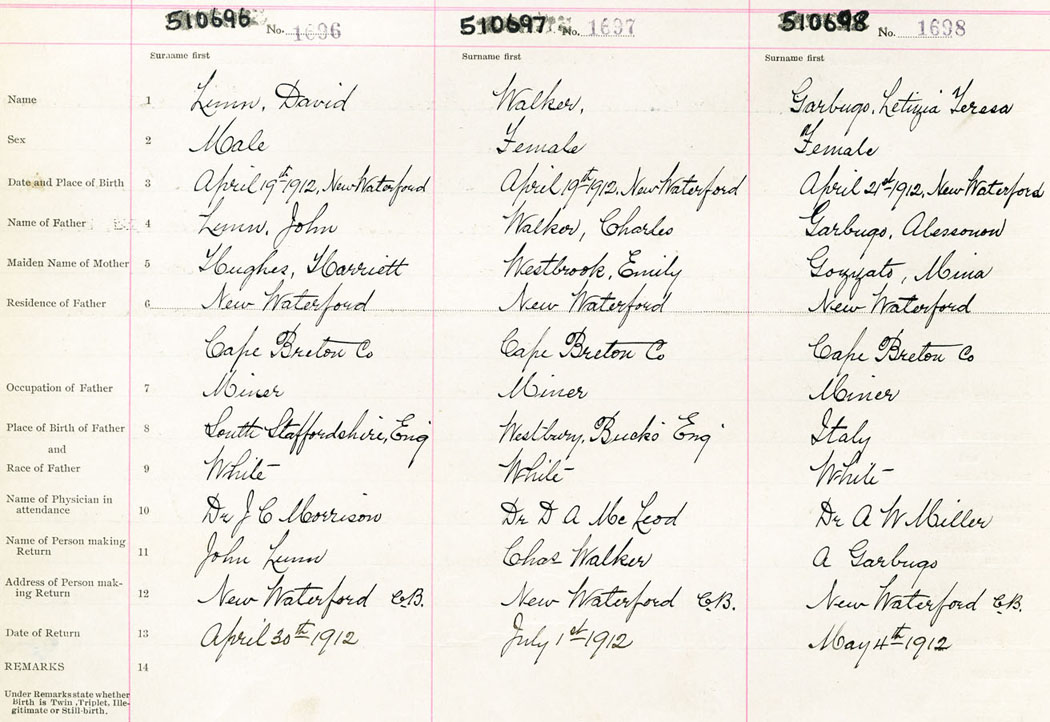 510696 No. 1696 510697 No. 1697 510698 No. 1698
Surname first Surname first Surname first
Name 1 Lunn, David Walker, Garbugo, Letizia Teresa
Sex 2 Male Female Female
Date and Place of Birth 3 April 19th 1912, New Waterford April 19th 1912, New Waterford April 21st 1912, New Waterford
Name of Father 4 Lunn, John Walker, Charles Garbugo,
Maiden Name of Mother 5 Hughes, Harriett Westbrook, Emily Gozzato, Mina
Residence of Father 6 New Waterford New Waterford New Waterford
Cape Breton Co Cape Breton Co Cape Breton Co
Occupation of Father 7 Miner Miner Miner
Place of Birth of Father 8 South Staffordshire, Eng Westbury, Bucks Eng Italy
and
Race of Father 9 White White White
Name of Physician in
attendance 10 Dr J C Morrison Dr D A Mc Leod Dr A W Miller
Name of Person making
Return 11 John Lunn Chas Walker A Garbugo
Address of Person mak-
ing Return 12 New Waterford C.B. New Waterford C.B. New Waterford C.B.
Date of Return 13 April 30th 1912 July 1st 1912 May 4th 1912
REMARKS 14
Under Remarks state whether
Birth is Twin, Triplet, Ille-
gitimate or Still-birth.